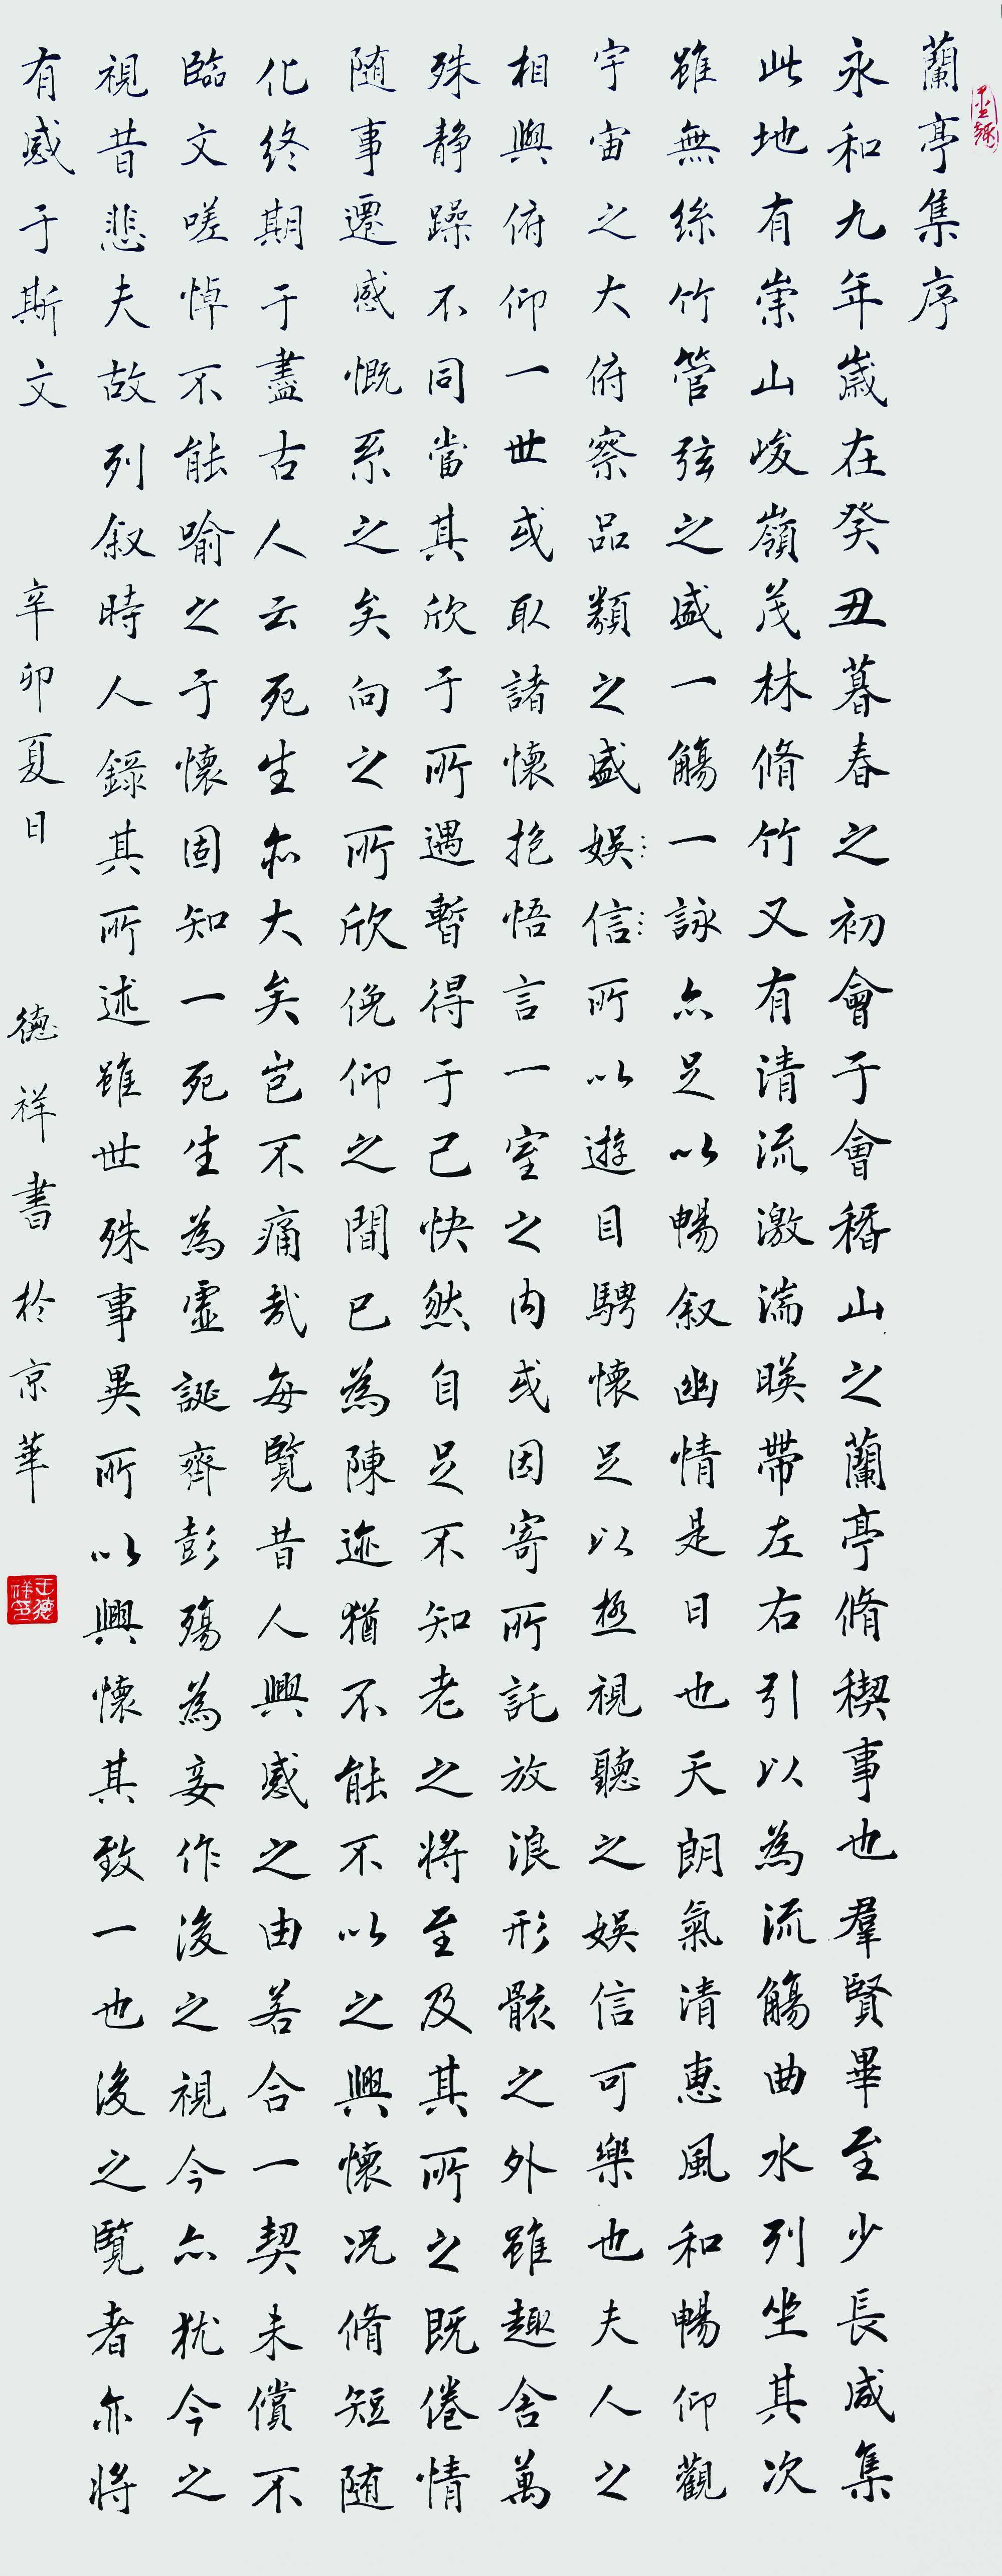 蘭亭集序
永和九年歲在癸丑暮春之初會于會稽山之蘭亭脩稧事也羣賢畢至少長咸集
此地有崇山峻嶺茂林脩竹又有清流激湍暎帶左右引以為流觴曲水列坐其次
雖無絲竹管弦之盛一觴一詠亦足以暢叙幽情是日也天朗氣清惠風和暢仰觀
宇宙之大俯察品類之盛娛信所以遊目騁懷足以極視聽之娛信可樂也夫人之
相與俯仰一世或取諸懷抱悟言一室之內或因寄所託放浪形骸之外雖趣舍萬
殊静躁不同當其欣于所遇暫得于己快然自足不知老之將至及其所之既倦情
随事遷感慨系之矣向之所欣俛仰之間已為陳迹猶不能不以之興懷況脩短随
化終期于盡古人云死生亦大矣岂不痛哉每覽昔人興感之由若合一契未償不
臨文嗟悼不能喻之于懷固知一死生為虛誕齊彭殤為妄作後之視今亦犹今之
視昔悲夫故列叙時人錄其所述雖世殊事異所以興懷其致一也後之覽者亦將
有感于斯文 辛卯夏日 德祥書於京華
王德祥印